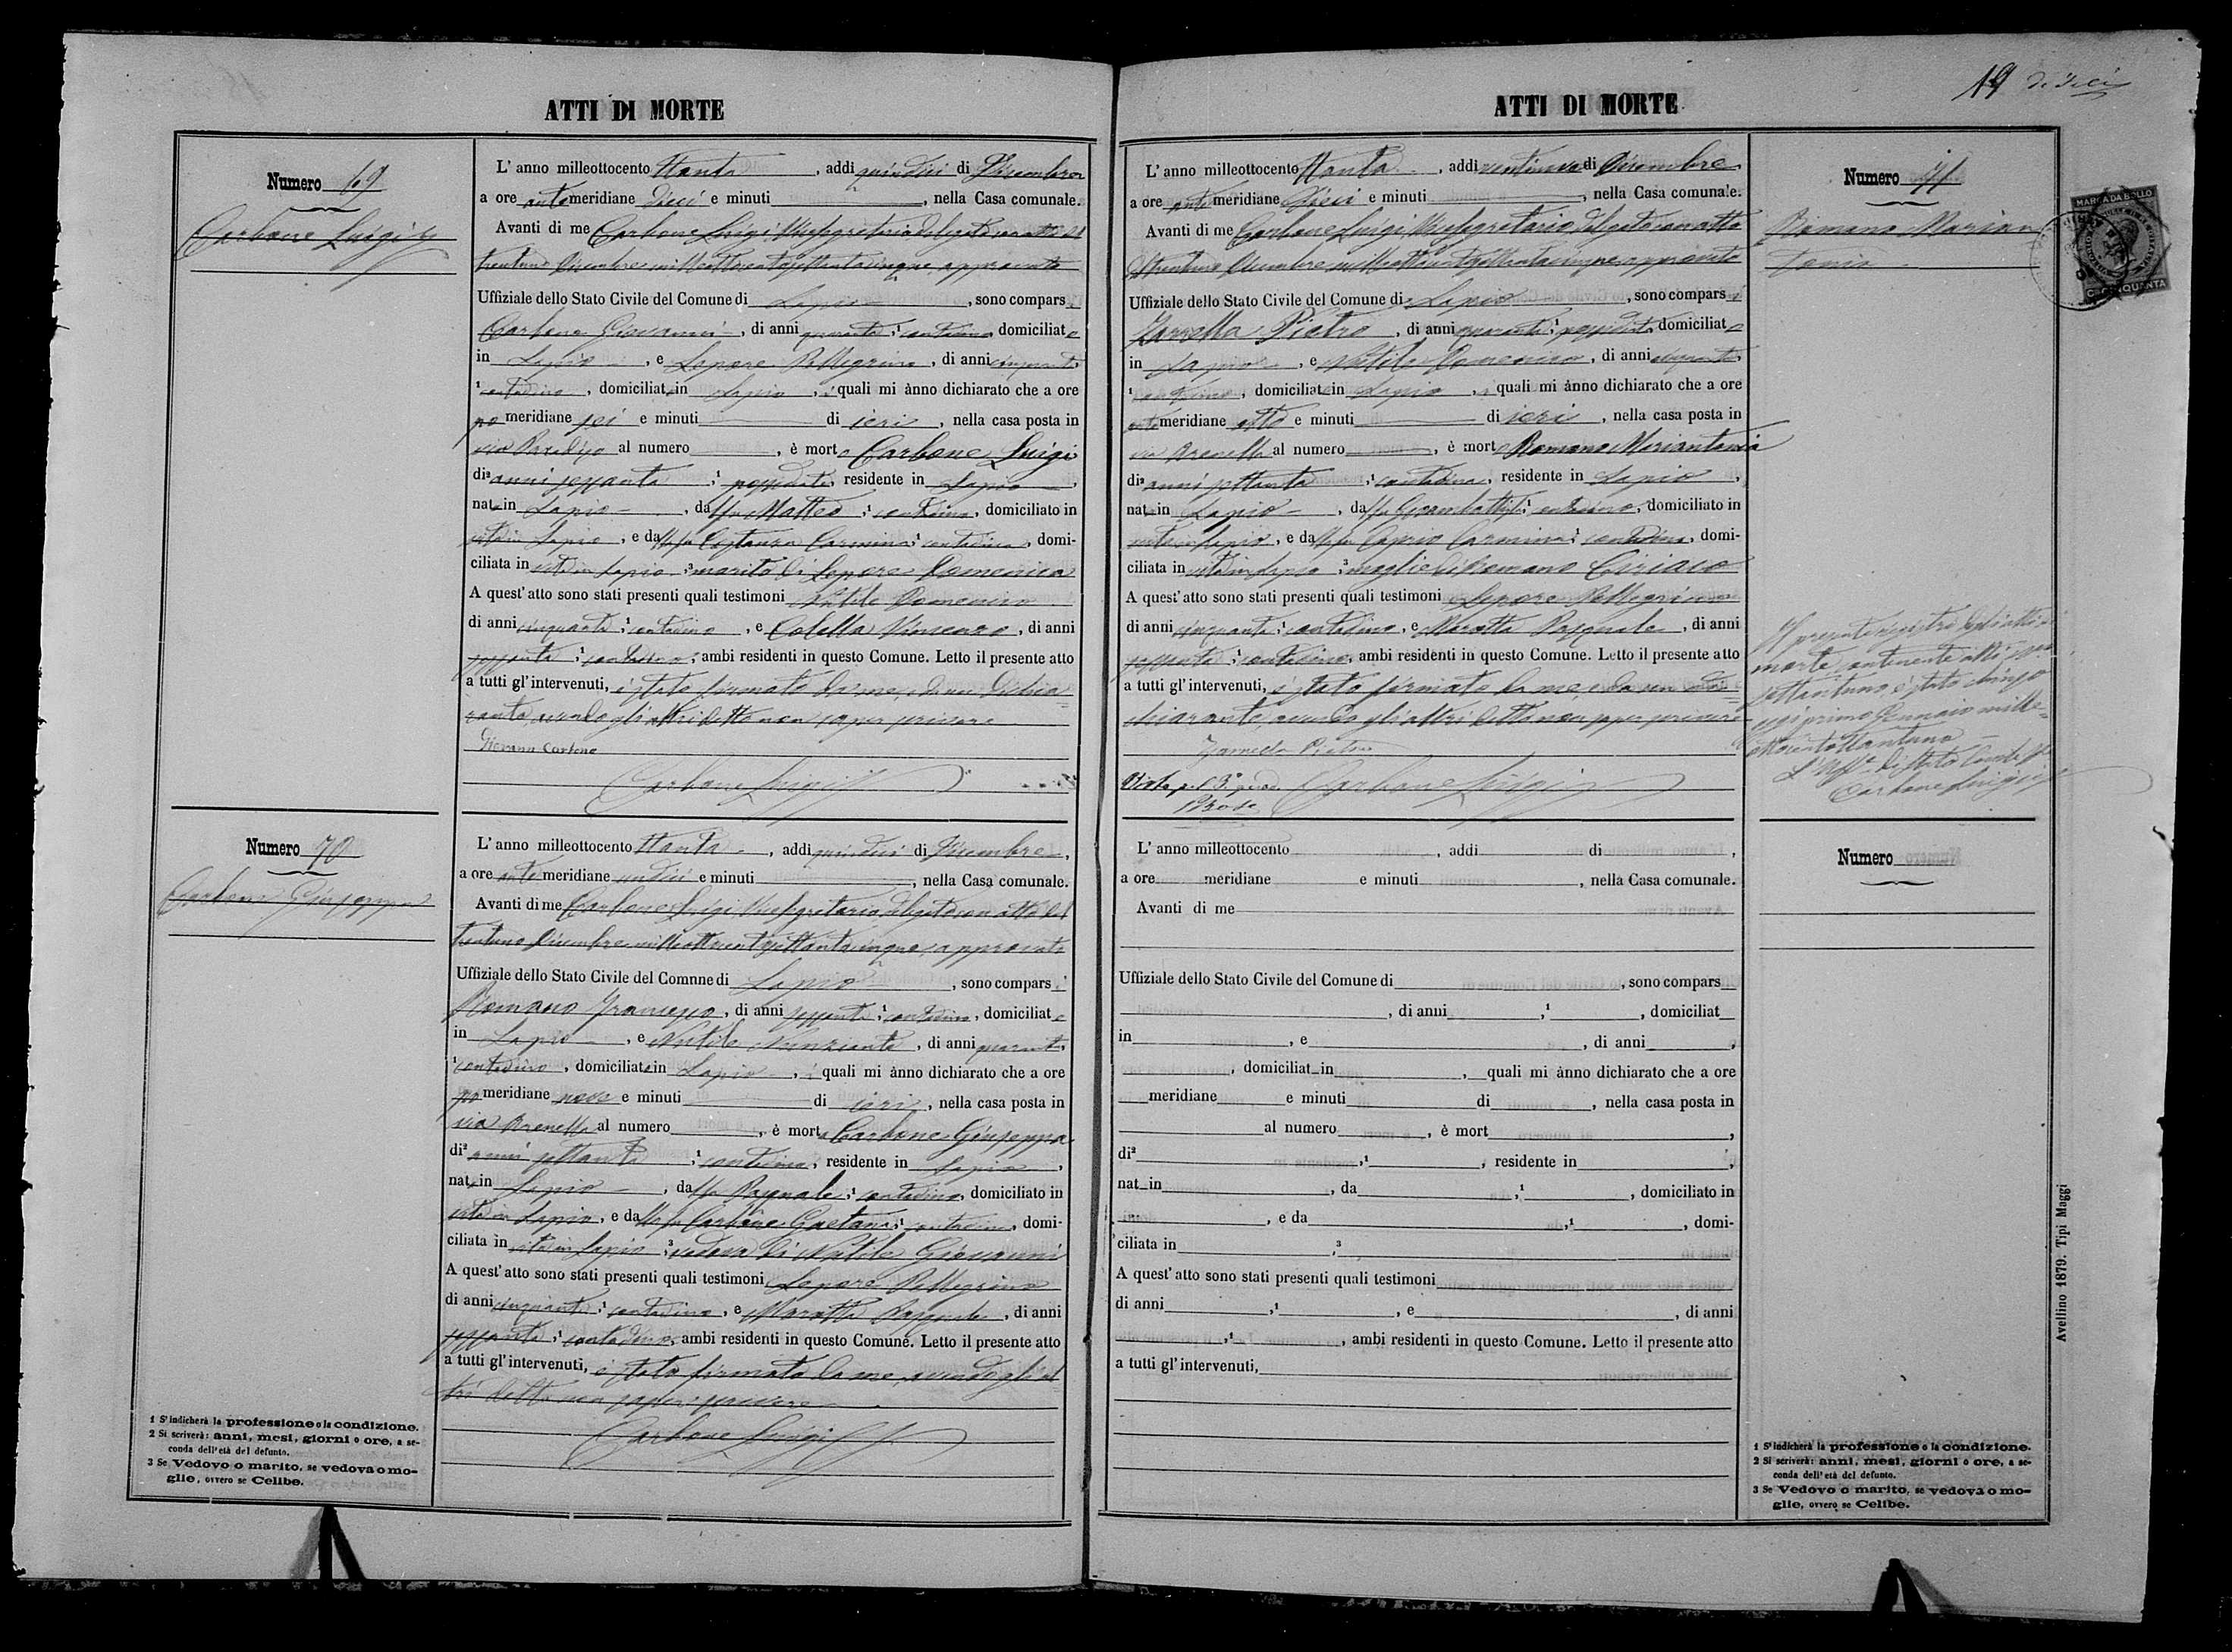 ATTI DI MORTE
Numero 69
Carbone Luigi
L' anno milleottocento ottanta, addi quindici di Dicembre
a ore antemeridiane dieci e minuti, nella Casa comunale.
Avanti di me Carbone Luigi Vicesegretario delegato con atto del
trentuno Dicembre milleottocentosettantacinque approvato
Uffiziale dello Stato Civile del Comune di Lapio, sono comparsi
Carbone Giovanni, di anni quaranta, contadino domiciliato
in Lapio, e Lepore Pellegrino, di anni cinquanta,
contadino, domiciliato in Lapio, i quali mi ànno dichiarato che a ore
pomeridiane sei e minuti di ieri, nella casa posta in
via al numero, è morto Carbone Luigi
di² anni sessanta,¹ possidente, residente in Lapio,
nato in Lapio, da fu Matteo,¹ contadino, domiciliato in
vita in Lapio, e dalla fu Costanza Carmina,¹ contadina, domi-
ciliata in vita in Lapio,³ marito di Lepore Domenica
A quest' atto sono stati presenti quali testimoni Nutile Domenico
di anni cinquanta,¹ contadino, e Colella Vincenzo, di anni
sessanta,¹ contadino, ambi residenti in questo Comune. Letto il presente atto
a tutti gl' intervenuti, è stato firmato da me, e da un dichia
rante, avendo gli altri detto non saper scrivere
Giovanni Carbone
Carbone Luigi
Numero 70
Carbone Giuseppa
L' anno milleottocento ottanta, addi quindici di Dicembre,
a ore antemeridiane undici e minuti, nella Casa comunale.
Avanti di me Carbone Luigi Vicesegretario delegato con atto del
trentuno Dicembre milleottocentosettantacinque, approvato
Uffiziale dello Stato Civile del Comnne di Lapio, sono comparsi
Romano Francesco, di anni sessanta,¹ contadino, domiciliato
in Lapio, e Nutile Nunziante, di anni quaranta,
¹ contadino, domiciliato in Lapio, i quali mi ànno dichiarato che a ore
pomeridiane nove e minuti di ieri, nella casa posta in
via Arenella al numero, è morta Carbone Giuseppa
di² anni settanta,¹ contadina, residente in Lapio,
nata in Lapio, da fu Pasquale,¹ contadino, domiciliato in
vita in Lapio, e dalla fu Carbone Gaetana,¹ contadina, domi-
ciliata in vita in Lapio,³ vedova di Nutile Giovanni
A quest' atto sono stati presenti quali testimoni Lepore Pellegrino
di anni cinquanta,¹ contadino, e Marotta Pasquale, di anni
sessanta,¹ contadino, ambi residenti in questo Comune. Letto il presente atto
a tutti gl' intervenuti, è stato firmato da me, avendo gli al
tri detto non saper scrivere
Carbone Luigi
1 S' indicherà la professione o la condizione.
2 Si scriverà: anni, mesi, giorni o ore, a se-
conda dell' età del defunto.
3 Se Vedovo o marito, se vedova o mo-
glie, ovvero se Celibe.
ATTI DI MORTE
19
MARCA DA BOLLO
CINQUANTA
L' anno milleottocento ottanta, addi ventinove di Dicembre
a ore antemeridiane dieci e minuti, nella Casa comunale.
Avanti di me Carbone Luigi Vicesegretario delegato con atto
trentuno Dicembre milleottocentosettantacinque approvato
Uffiziale dello Stato Civile del Comune di Lapio, sono comparsi
Zarrella Pietro, di anni quaranta,¹ possidente, domiciliato
in Lapio, e Nutile Domenico, di anni cinquanta,
¹ contadino, domiciliato in Lapio, i quali mi ànno dichiarato che a ore
antemeridiane otto e minuti di ieri, nella casa posta in
via Arenella al numero, è morta Romano Mariantonia
di² anni settanta,¹ contadina, residente in Lapio,
nata in Lapio, da fu Giambattista,¹ contadino, domiciliato in
vita in Lapio, e dalla fu Caprio Carmina,¹ contadina, domi-
ciliata in vita in Lapio,³ moglie di Romano Ciriaco
A quest' atto sono stati presenti quali testimoni Lepore Pellegrino
di anni cinquanta,¹ contadino, e Marotta Pasquale, di anni
sessanta,¹ contadino, ambi residenti in questo Comune. Letto il presente atto
a tutti gl' intervenuti, è stato firmato da me, e da un di
chiarante, avendo gli altri detto non saper scrivere
Zarrella Pietro
Carbone Luigi
Numero 71
Romano Marian
tonia
Il presente registro degli atti di
morte contenente atti
settantuno è stato chiuso
oggi primo Gennaio mille
ottocentottantuno
L'Uffle di Stato Civile
Carbone Luigi
L' anno milleottocento, addi di,
a ore meridiane e minuti, nella Casa comunale.
Avanti di me
Uffiziale dello Stato Civile del Comune di, sono compars
, di anni,¹, domiciliat
in, e, di anni,
, domiciliat in, quali mi ànno dichiarato che a ore
meridiane e minuti di, nella casa posta in
al numero, è mort,
di²,¹, residente in,
nat in, da,¹, domiciliato in
, e da,¹, domi-
ciliata in,³
A quest' atto sono stati presenti quali testimoni
di anni,¹, e, di anni
,¹, ambi residenti in questo Comune. Letto il presente atto
a tutti gl' intervenuti,
Numero
1 S' indicherà la professione o la condizione.
2 Si scriverà: anni, mesi, giorni o ore, a se-
conda dell' età del defunto.
3 Se Vedovo o marito, se vedova o mo-
glie, ovvero se Celibe.
Avellino 1879. Tipi Maggi